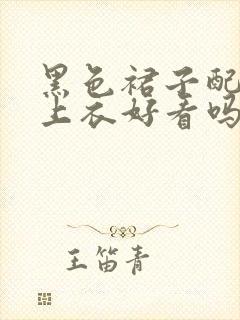 黑色裙子配
上衣好看吗
王笛青